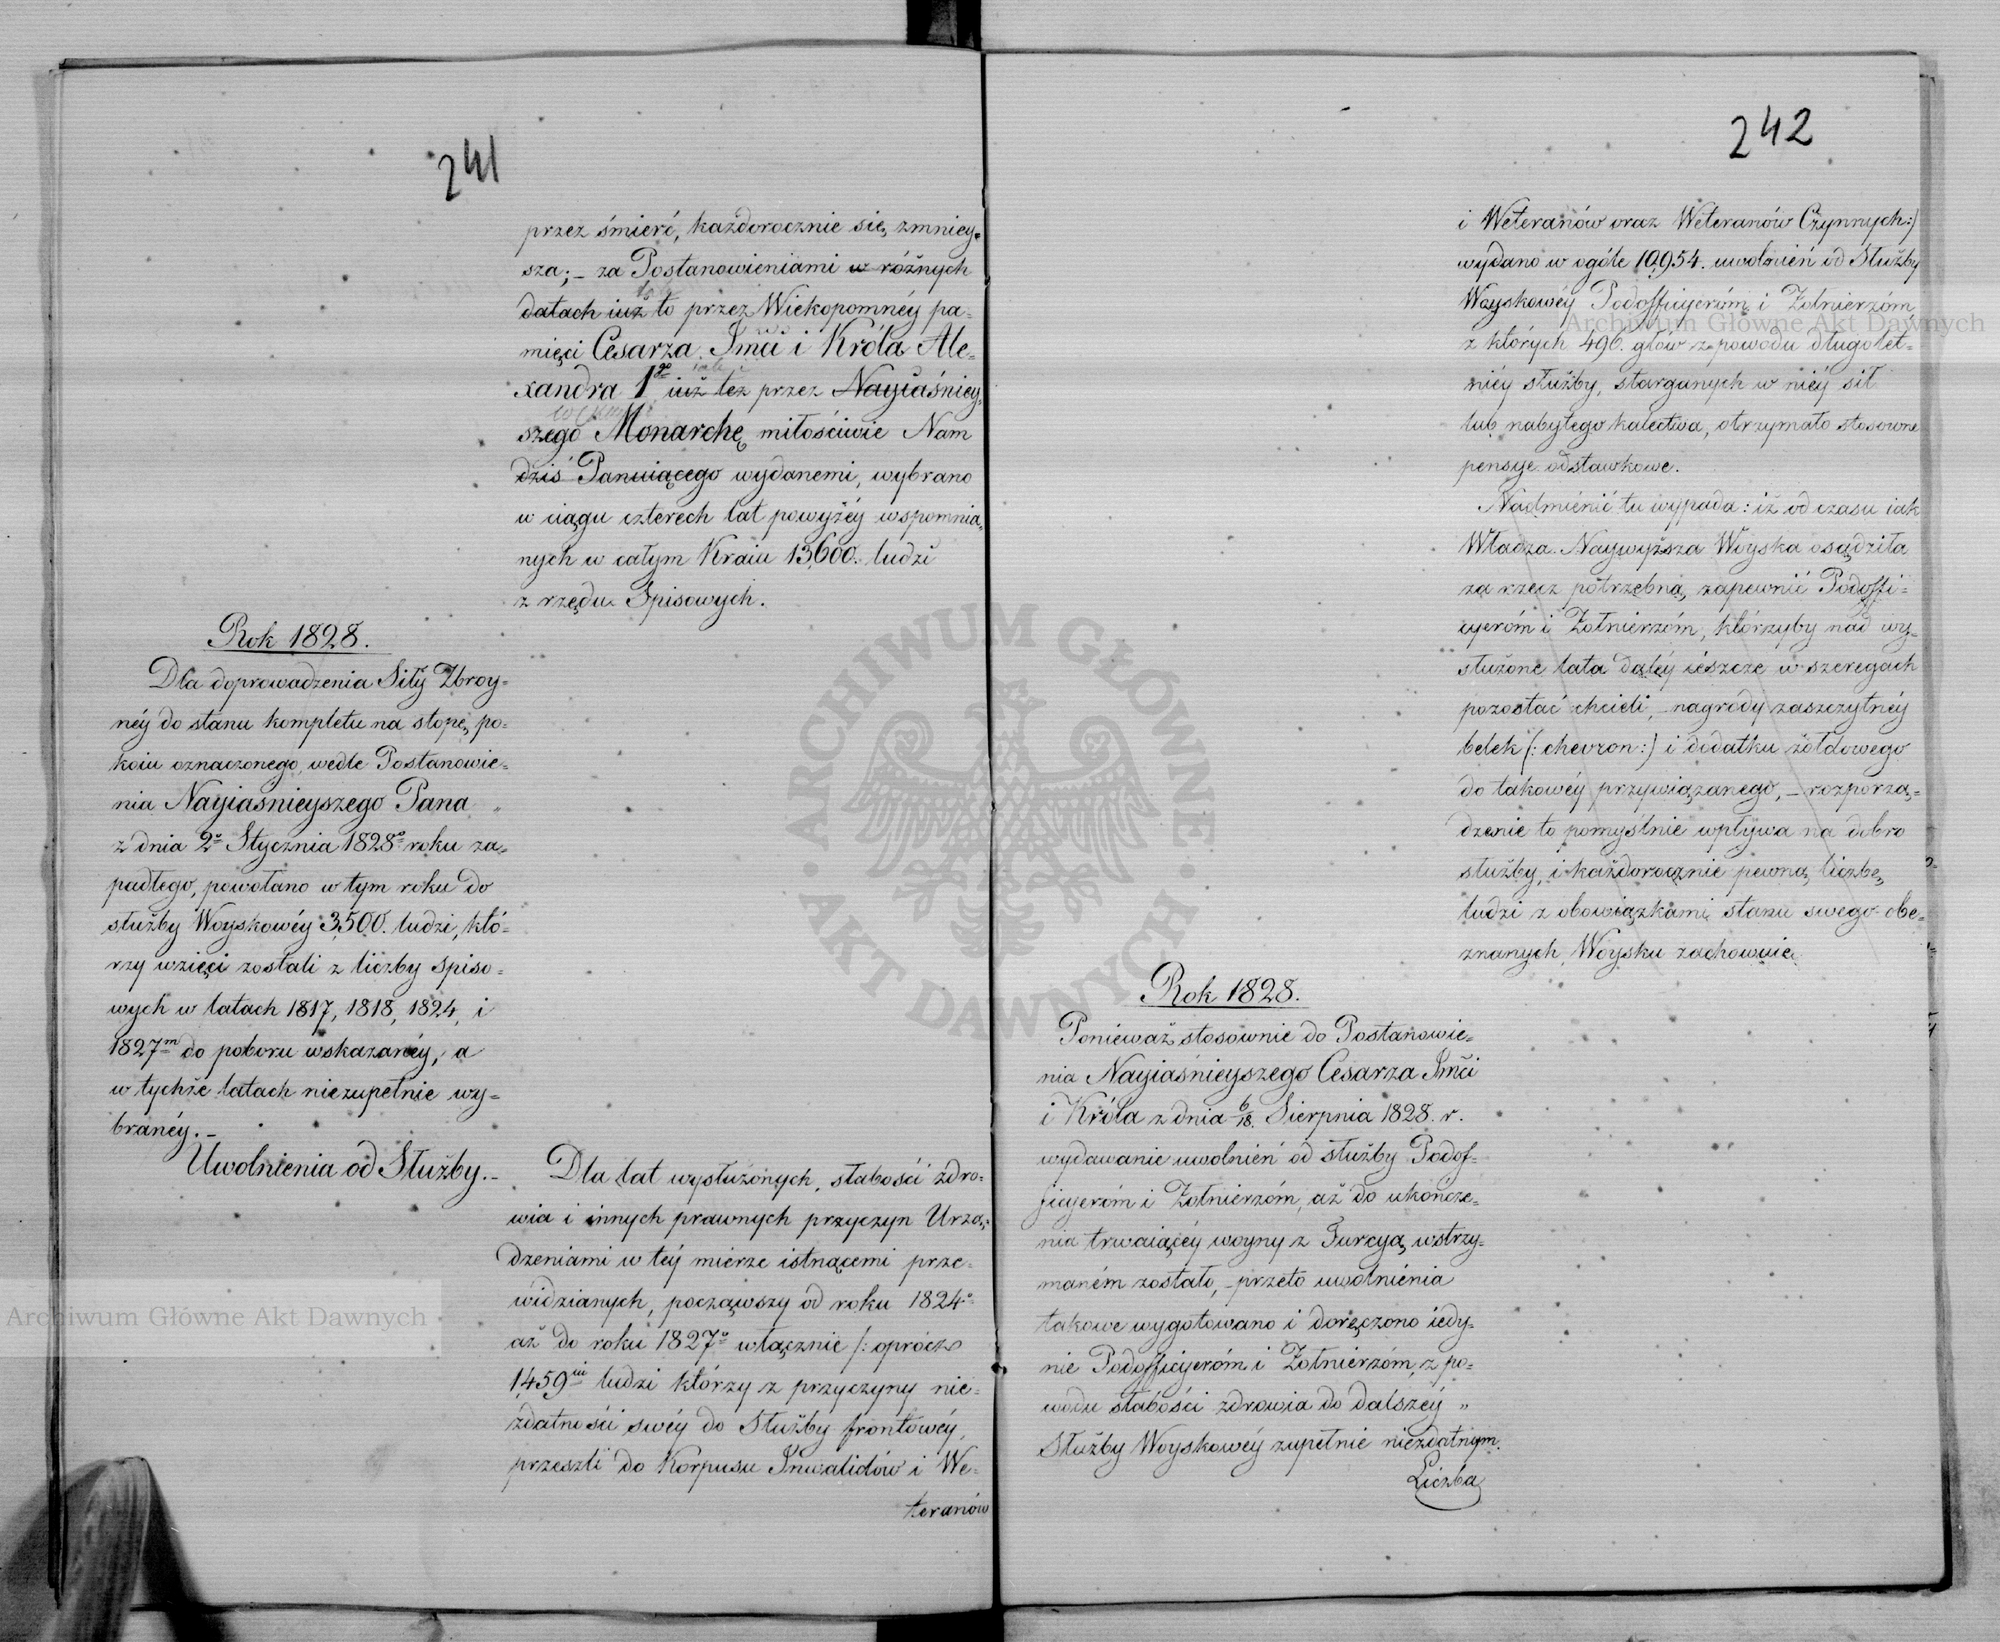 241
przez śmierć, każdorocznie się zmniey-
sza; – za Postanowieniami w różnych
datach iuż to przez Wiekopomnéy pa-
mięci Cesarza Jmci i Króla Ale-
xandra 1go iuż też przez Nayiaśniey-
szego Monarchę miłościwie Nam
dziś Panuiącego wydanemi, wybrano
w ciągu czterech lat powyżéy wspomnia-
nych w całym Kraiu 13,600. ludzi
z rzędu Spisowych.
Rok 1828.
Dla doprowadzenia Siły Zbroy-
néy do stanu kompletu na stopę po-
koiu oznaczonego, wedle Postanowie-
nia Nayiasnieyszego Pana „
z dnia 2o Stycznia 1828o roku za-
padłego, powołano w tym roku do
służby Woyskowéy 3,500. ludzi, któ-
rzy wzięci zostali z liczby spiso-
wych w latach 1817, 1818, 1824, i
1827m do poboru wskazanéy, a
w tychże latach niezupełnie wy-
branéy. –
Uwolnienia od Służby. –
Dla lat wysłużonych, słabości zdro-
wia i innych prawnych przyczyn Urzą-
dzeniami w téy mierze istnącemi prze-
widzianych, począwszy od roku 1824o
aż do roku 1827o włącznie (: oprócz
1,459iu ludzi którzy z przyczyny nie-
zdatności swéy do Służby frontowéy,
przeszli do Korpusu Inwalidów i We-
teranów
242
i Weteranów oraz Weteranów Czynnych :)
wydano w ogóle 10,954. uwolnień od Służby
Woyskowéy Podofficyeróm i Żołnierzóm,
z których 496. głów z powodu długolet-
niéy służby, starganych w niéy sił
lub nabytego kalectwa, otrzymało stosowne
pensye odstawkowe.
Nadmiénić tu wypada: iż od czasu iak
Władza Naywyższa Woyska osądziła
za rzecz potrzebną, zapewnić Podoffi-
cyeróm i Żołnierzóm, którzyby nad wy-
służone lata daléy ieszcze w szeregach
pozostać chcieli, – nagrody zaszczytnéy
belek (: chevron :) i dodatku żołdowego
do takowéy przywiązanego, – rozporzą-
dzenie to pomyslnie wpływa na dobro
służby, i każdorocznie pewną liczbę
ludzi z obowiązkami stanu swego obe-
znanych, Woysku zachowuie.
Rok 1828.
Ponieważ stosownie do Postanowie-
nia Nayiaśnieyszego Cesarza Jmci
i Króla z dnia 6/18. Sierpnia 1828. r.
wydawanie uwolnień od służby Podof-
ficyeróm i Żołnierzóm, aż do ukończe-
nia trwaiącéy woyny z Turcyą, wstrzy-
maném zostało, – przeto uwolniénia
takowe wygotowano i doręczono iedy-
nie Podofficyeróm i Żołnierzóm, z po-
wodu słabości zdrowia do dalszéy „
Służby Woyskowéy zupełnie niezdatnym.
Liczba
ARCHIWUM GŁÓWNE AKT DAWNYCH
Archiwum Główne Akt Dawnych
Archiwum Główne Akt Dawnych